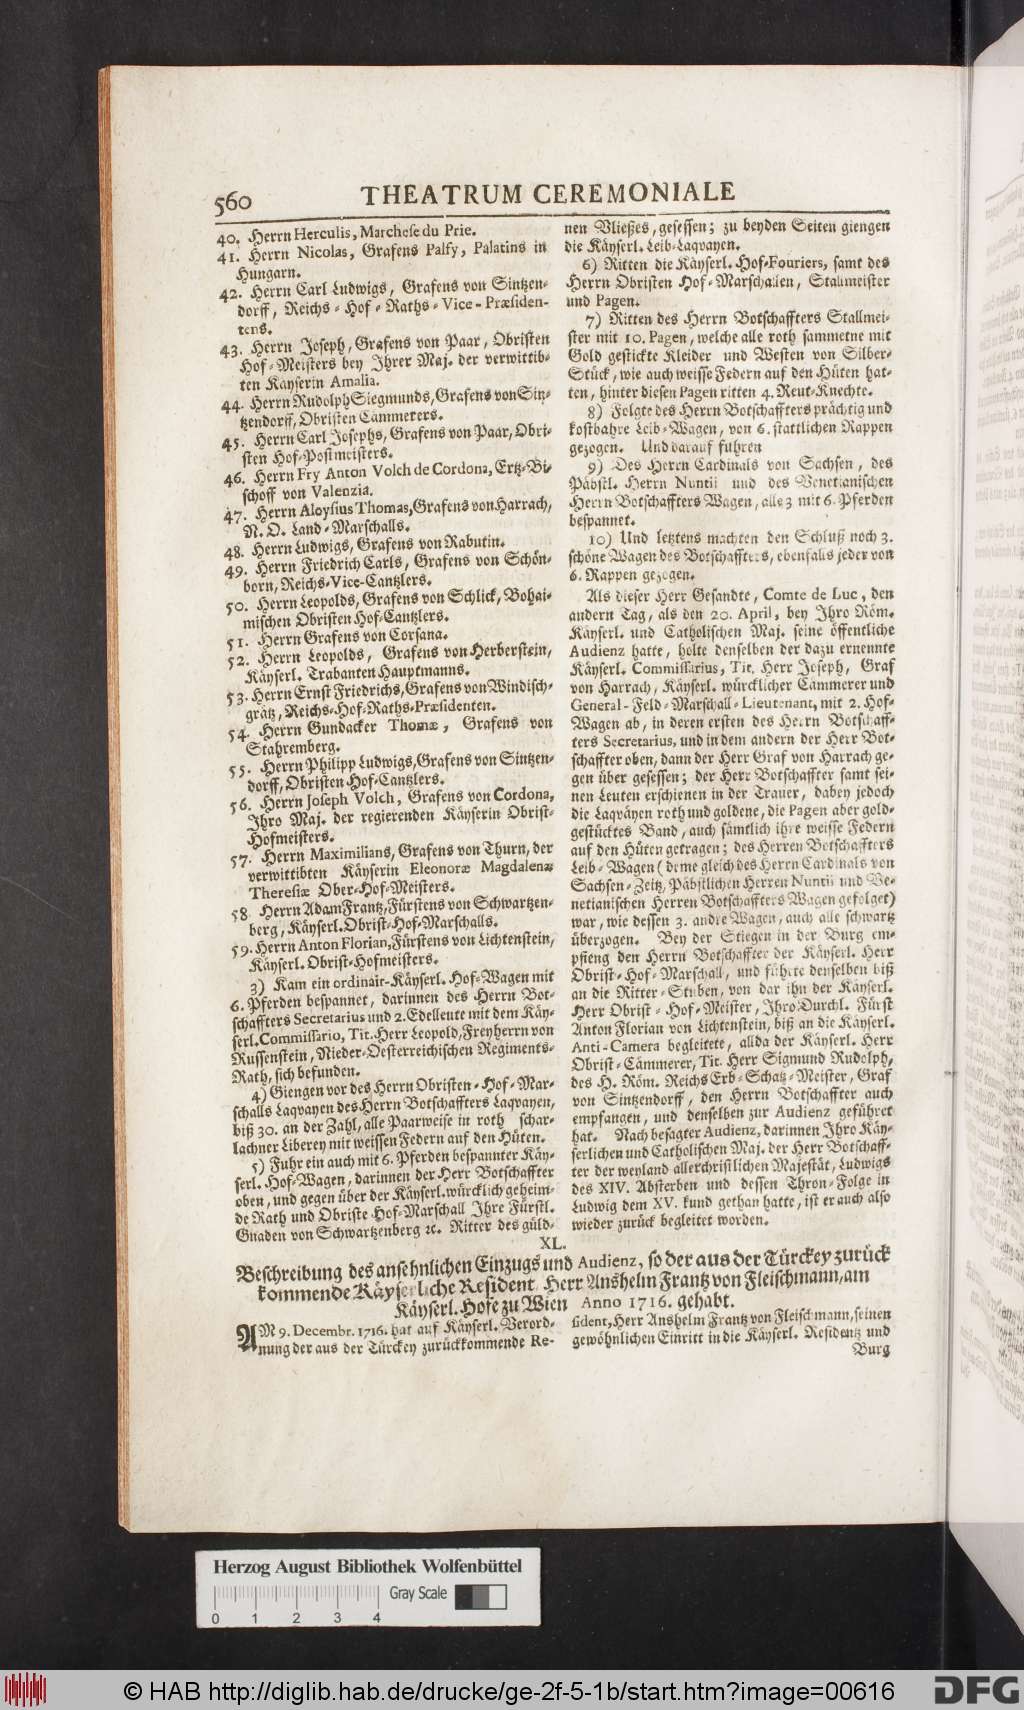 560
THEATRUM CEREMONIALE
40. Herrn Herculis, Marchese du Prie.
41. Herrn Nicolas, Grafens Palfy, Palatins in
Hungarn.
42. Herrn Carl Ludwigs, Grafens von Sintzen-
dorff, Reichs-Hof-Raths-Vice-Præsiden-
tens.
43. Herrn Joseph, Grafens von Paar, Obristen
Hof-Meisters bey Jhrer Maj. der verwittib-
ten Kayserin Amalia.
44. Herrn Rudolph Siegmunds, Grafens von Sin-
tzendorff, Obristen Cämmerers.
45. Herrn Carl Josephs, Grafens von Paar, Obri-
sten Hof-Postmeisters.
46. Herrn Fry Anton Volch de Cordona, Ertz-Bi-
schoff von Valenzia.
47. Herrn Aloysius Thomas, Grafens von Harrach,
N. O. Land-Marschalls.
48. Herrn Ludwigs, Grafens von Rabutin.
49. Herrn Friedrich Carls, Grafens von Schön-
born, Reichs-Vice-Cantzlers.
50. Herrn Leopolds, Grafens von Schlick, Bohai-
mischen Obristen Hof-Cantzlers.
51. Herrn Grafens von Corsana.
52. Herrn Leopolds, Grafens von Herberstein,
Käyserl. Trabanten Hauptmanns.
53. Herrn Ernst Friedrichs, Grafens von Windisch-
grätz, Reichs-Hof-Raths-Præsidenten.
54. Herrn Gundacker Thomæ, Grafens von
Stahremberg.
55. Herrn Philipp Ludwigs, Grafens von Sintzen-
dorff, Obristen Hof-Cantzlers.
56. Herrn Joseph Volch, Grafens von Cordona,
Jhro Maj. der regierenden Käyserin Obrist-
Hofmeisters.
57. Herrn Maximilians, Grafens von Thurn, der
verwittibten Käyserin Eleonoræ Magdalenæ
Theresiæ Ober-Hof-Meisters.
58. Herrn Adam Frantz, Fürstens von Schwartzen-
berg, Käyserl. Obrist-Hof-Marschalls.
59. Herrn Anton Florian, Fürstens von Lichtenstein,
Käyserl. Obrist-Hofmeisters.
3) Kam ein ordinair-Käyserl. Hof-Wagen mit
6. Pferden bespannet, darinnen des Herrn Bot-
schaffters Secretarius und 2. Edelleute mit dem Käy-
serl. Commissario, Tit. Herr Leopold, Freyherrn von
Russenstein, Nieder-Oesterreichischen Regiments-
Rath, sich befunden.
4) Giengen vor des Herrn Obristen-Hof-Mar-
schalls Laqvayen des Herrn Botschaffters Laqvayen,
biß 30. an der Zahl, alle Paarweise in roth schar-
lachner Liberey mit weissen Federn auf den Hüten.
5) Fuhr ein auch mit 6. Pferden bespannter Käy-
serl. Hof-Wagen, darinnen der Herr Botschaffter
oben, und gegen über der Käyserl. würcklich geheim-
de Rath und Obriste Hof-Marschall Jhre Fürstl.
Gnaden von Schwartzenberg ꝛc. Ritter des güld-
nen Vließes, gesessen; zu beyden Seiten giengen
die Käyserl. Leib-Laqvayen.
6) Ritten die Käyserl. Hof-Fouriers, samt des
Herrn Obristen Hof-Marschallen, Stallmeister
und Pagen.
7) Ritten des Herrn Botschaffters Stallmei-
ster mit 10. Pagen, welche alle roth sammetne mit
Gold gestickte Kleider und Westen von Silber-
Stück, wie auch weisse Federn auf den Hüten hat-
ten, hinter diesen Pagen ritten 4. Reut-Knechte.
8) Folgte des Herrn Botschaffters prächtig und
kostbahre Leib-Wagen, von 6. stattlichen Rappen
gezogen. Und darauf fuhren
9) Des Herrn Cardinals von Sachsen, des
Päbstl. Herrn Nuntii und des Venetianischen
Herrn Botschaffters Wagen, alle 3 mit 6. Pferden
bespannet.
10) Und letztens machten den Schluß noch 3.
schöne Wagen des Botschaffters, ebenfalls jeder von
6. Rappen gezogen.
Als dieser Herr Gesandte, Comte de Luc, den
andern Tag, als den 20. April, bey Jhro Röm.
Käyserl. und Catholischen Maj. seine öffentliche
Audienz hatte, holte denselben der dazu ernennte
Käyserl. Commissarius, Tit. Herr Joseph, Graf
von Harrach, Käyserl. würcklicher Cämmerer und
General-Feld-Marschall-Lieutenant, mit 2. Hof-
Wagen ab, in deren ersten des Herrn Botschaff-
ters Secretarius, und in dem andern der Herr Bot-
schaffter oben, dann der Herr Graf von Harrach ge-
gen über gesessen; der Herr Botschaffter samt sei-
nen Leuten erschienen in der Trauer, dabey jedoch
die Laqväyen roth und goldene, die Pagen aber gold-
gestücktes Band, auch sämtlich ihre weisse Federn
auf den Hüten getragen; des Herren Botschaffters
Leib-Wagen (deme gleich des Herrn Cardinals von
Sachsen-Zeitz, Päbstlichen Herren Nuntii und Ve-
netianischen Herren Botschaffters Wagen gefolget)
war, wie dessen 3. andre Wagen, auch alle schwartz
überzogen. Bey der Stiegen in der Burg em-
pfieng den Herrn Botschaffter der Käyserl. Herr
Obrist-Hof-Marschall, und führte denselben biß
an die Ritter-Stuben, von dar ihn der Käyserl.
Herr Obrist-Hof-Meister, Jhro Durchl. Fürst
Anton Florian von Lichtenstein, biß an die Käyserl.
Anti-Camera begleitete, allda der Käyserl. Herr
Obrist-Cämmerer, Tit. Herr Sigmund Rudolph,
des H. Röm. Reichs Erb-Schatz-Meister, Graf
von Sintzendorff, den Herrn Botschaffter auch
empfangen, und denselben zur Audienz geführet
hat. Nach besagter Audienz, darinnen Jhro Käy-
serlichen und Catholischen Maj. der Herr Botschaff-
ter der weyland allerchristlichen Majestät, Ludwigs
des XIV. Absterben und dessen Thron-Folge in
Ludwig dem XV. kund gethan hatte, ist er auch also
wieder zurück begleitet worden.
XL.
Beschreibung des ansehnlichen Einzugs und Audienz, so der aus der Türckey zurück
kommende Käyserliche Resident, Herr Anshelm Frantz von Fleischmann, am
Käyserl. Hofe zu Wien Anno 1716. gehabt.
AM 9. Decembr. 1716. hat auf Käyserl. Verord-
nung der aus der Türckey zurückkommende Re-
sident, Herr Anshelm Frantz von Fleischmann, seinen
gewöhnlichen Einritt in die Käyserl. Residentz und
Burg
Herzog August Bibliothek Wolfenbüttel
Gray Scale
0 1 2 3 4
© HAB http://diglib.hab.de/drucke/ge-2f-5-1b/start.htm?image=00616
DFG